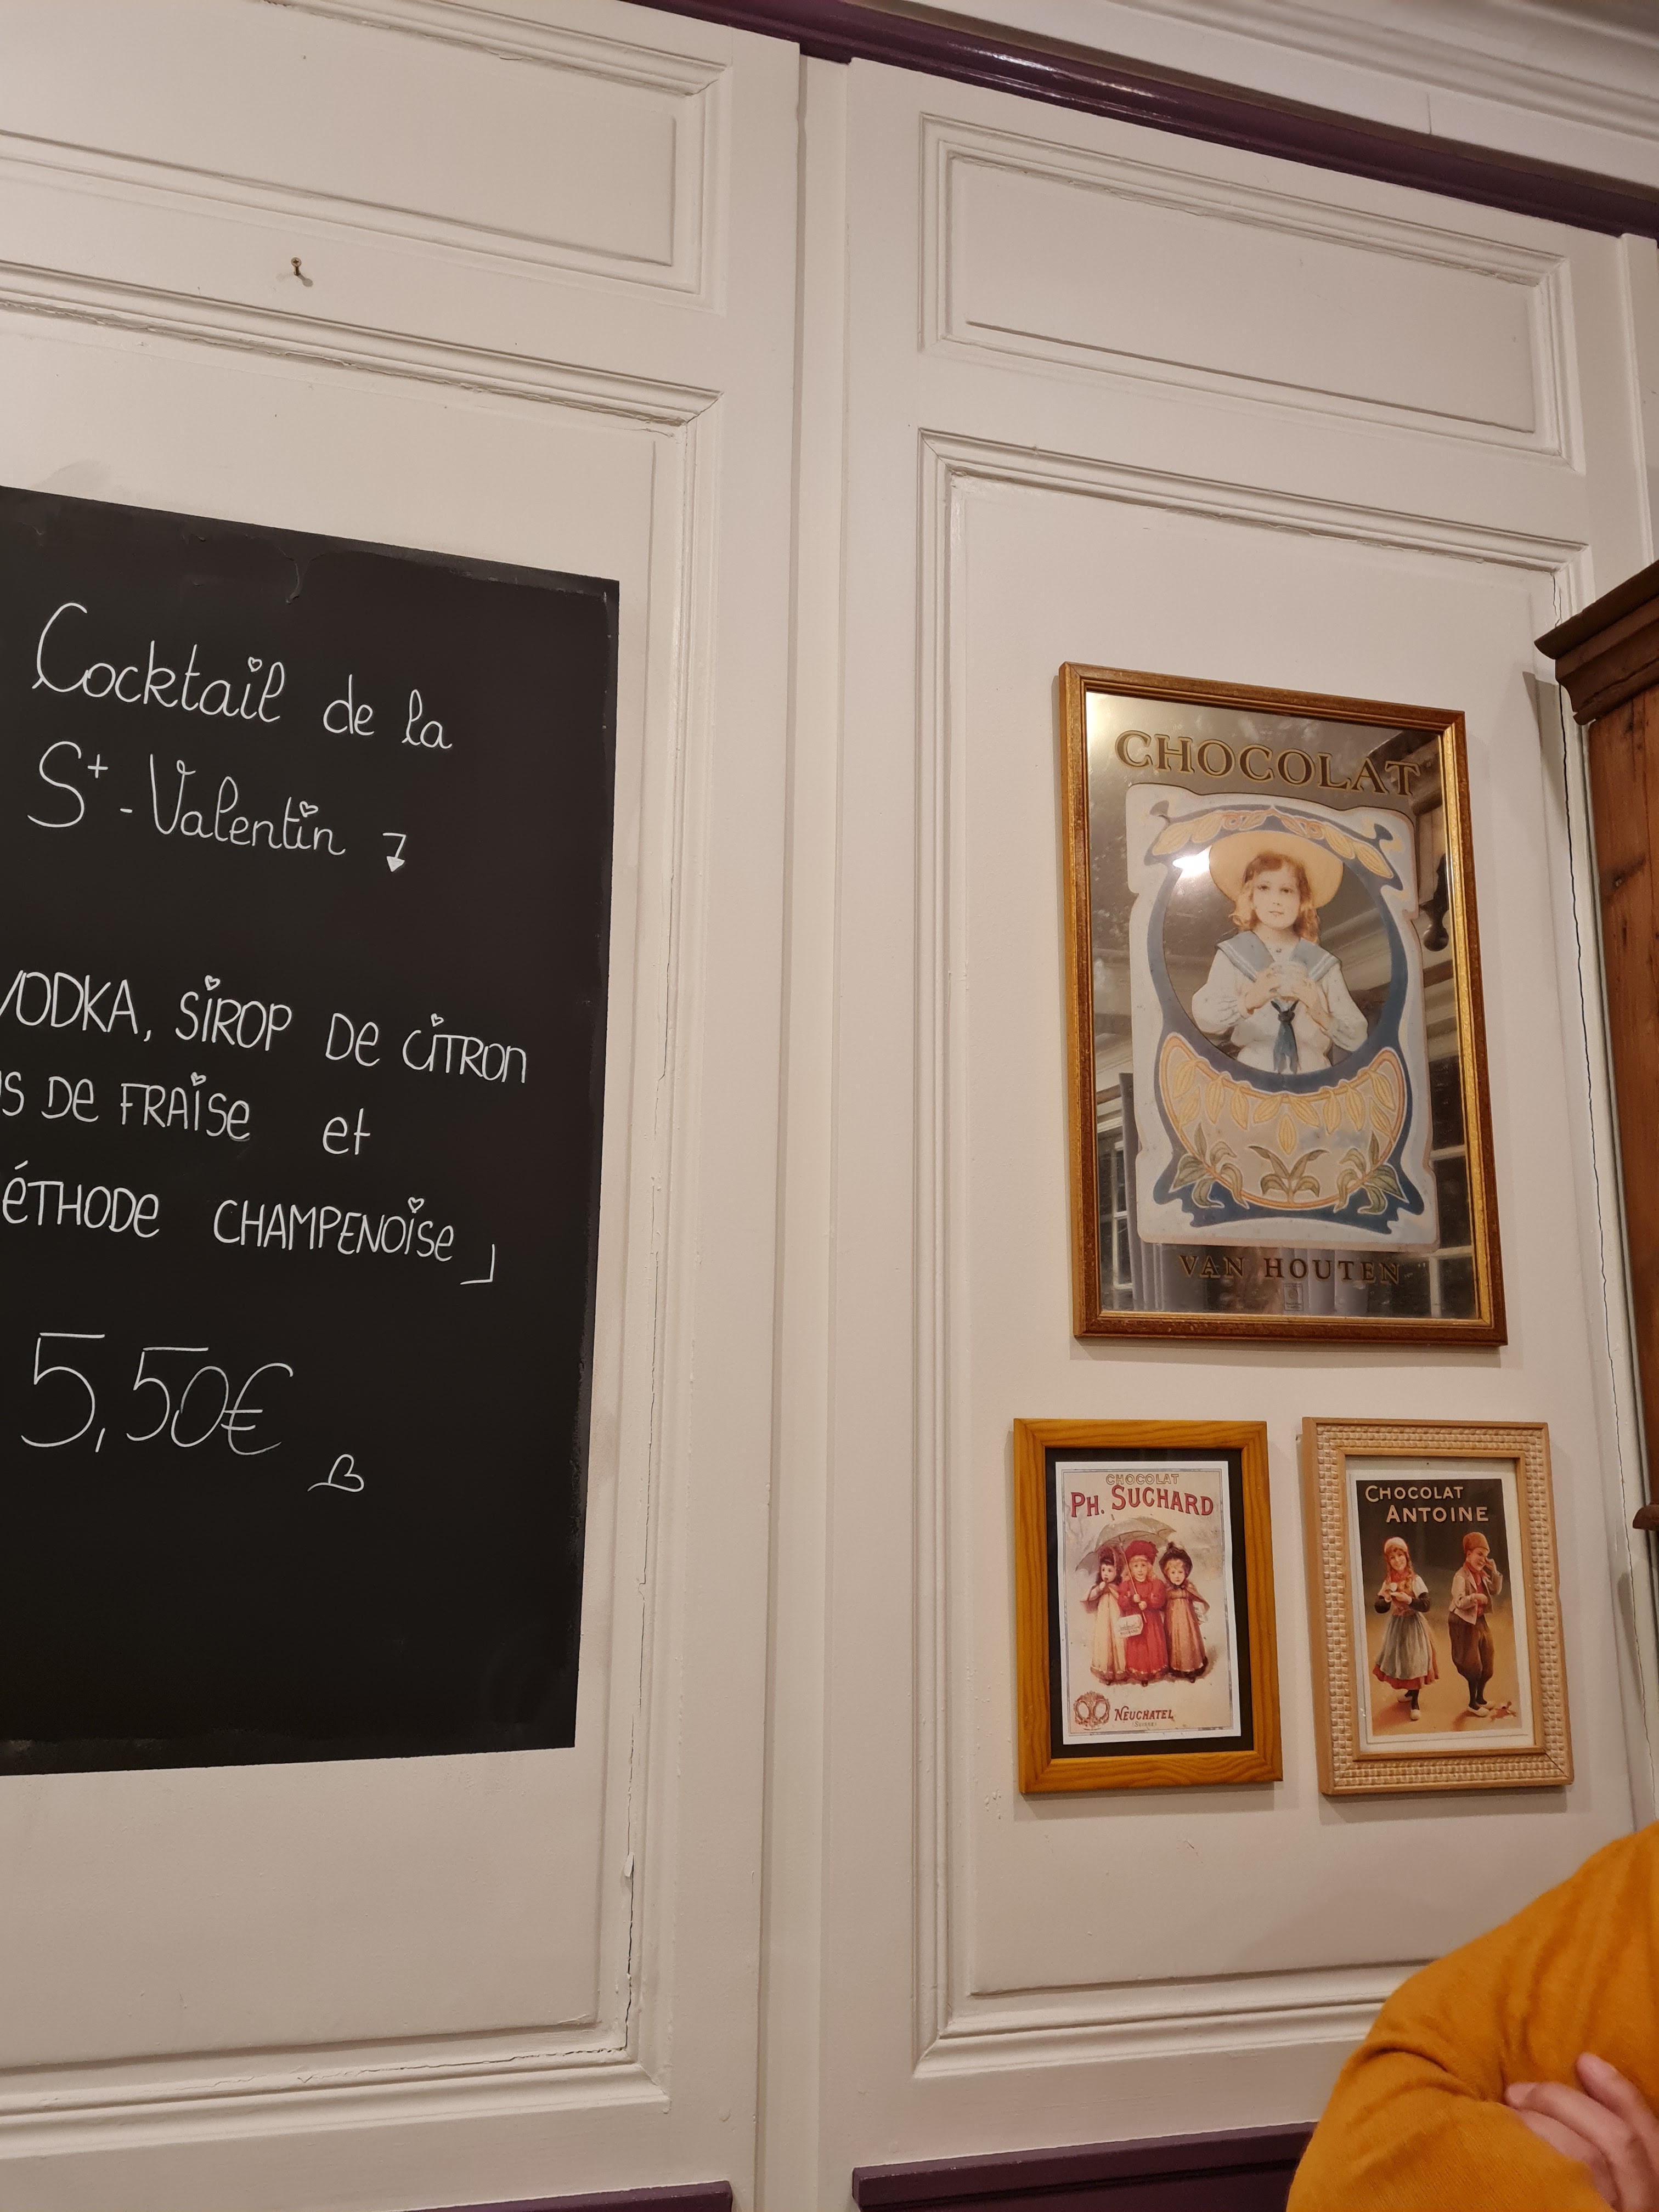 Cocktail de la
St-Valentin
VODKA, SiROP De CiTRON
DE FRAiSe et
CHAMPENOiSe
5,50€
CHOCOLAT
VAN HOUTEN
CHOCOLAT
PH. SUCHARD
NEUCHATEL
(SUISSE)
CHOCOLAT
ANTOINE